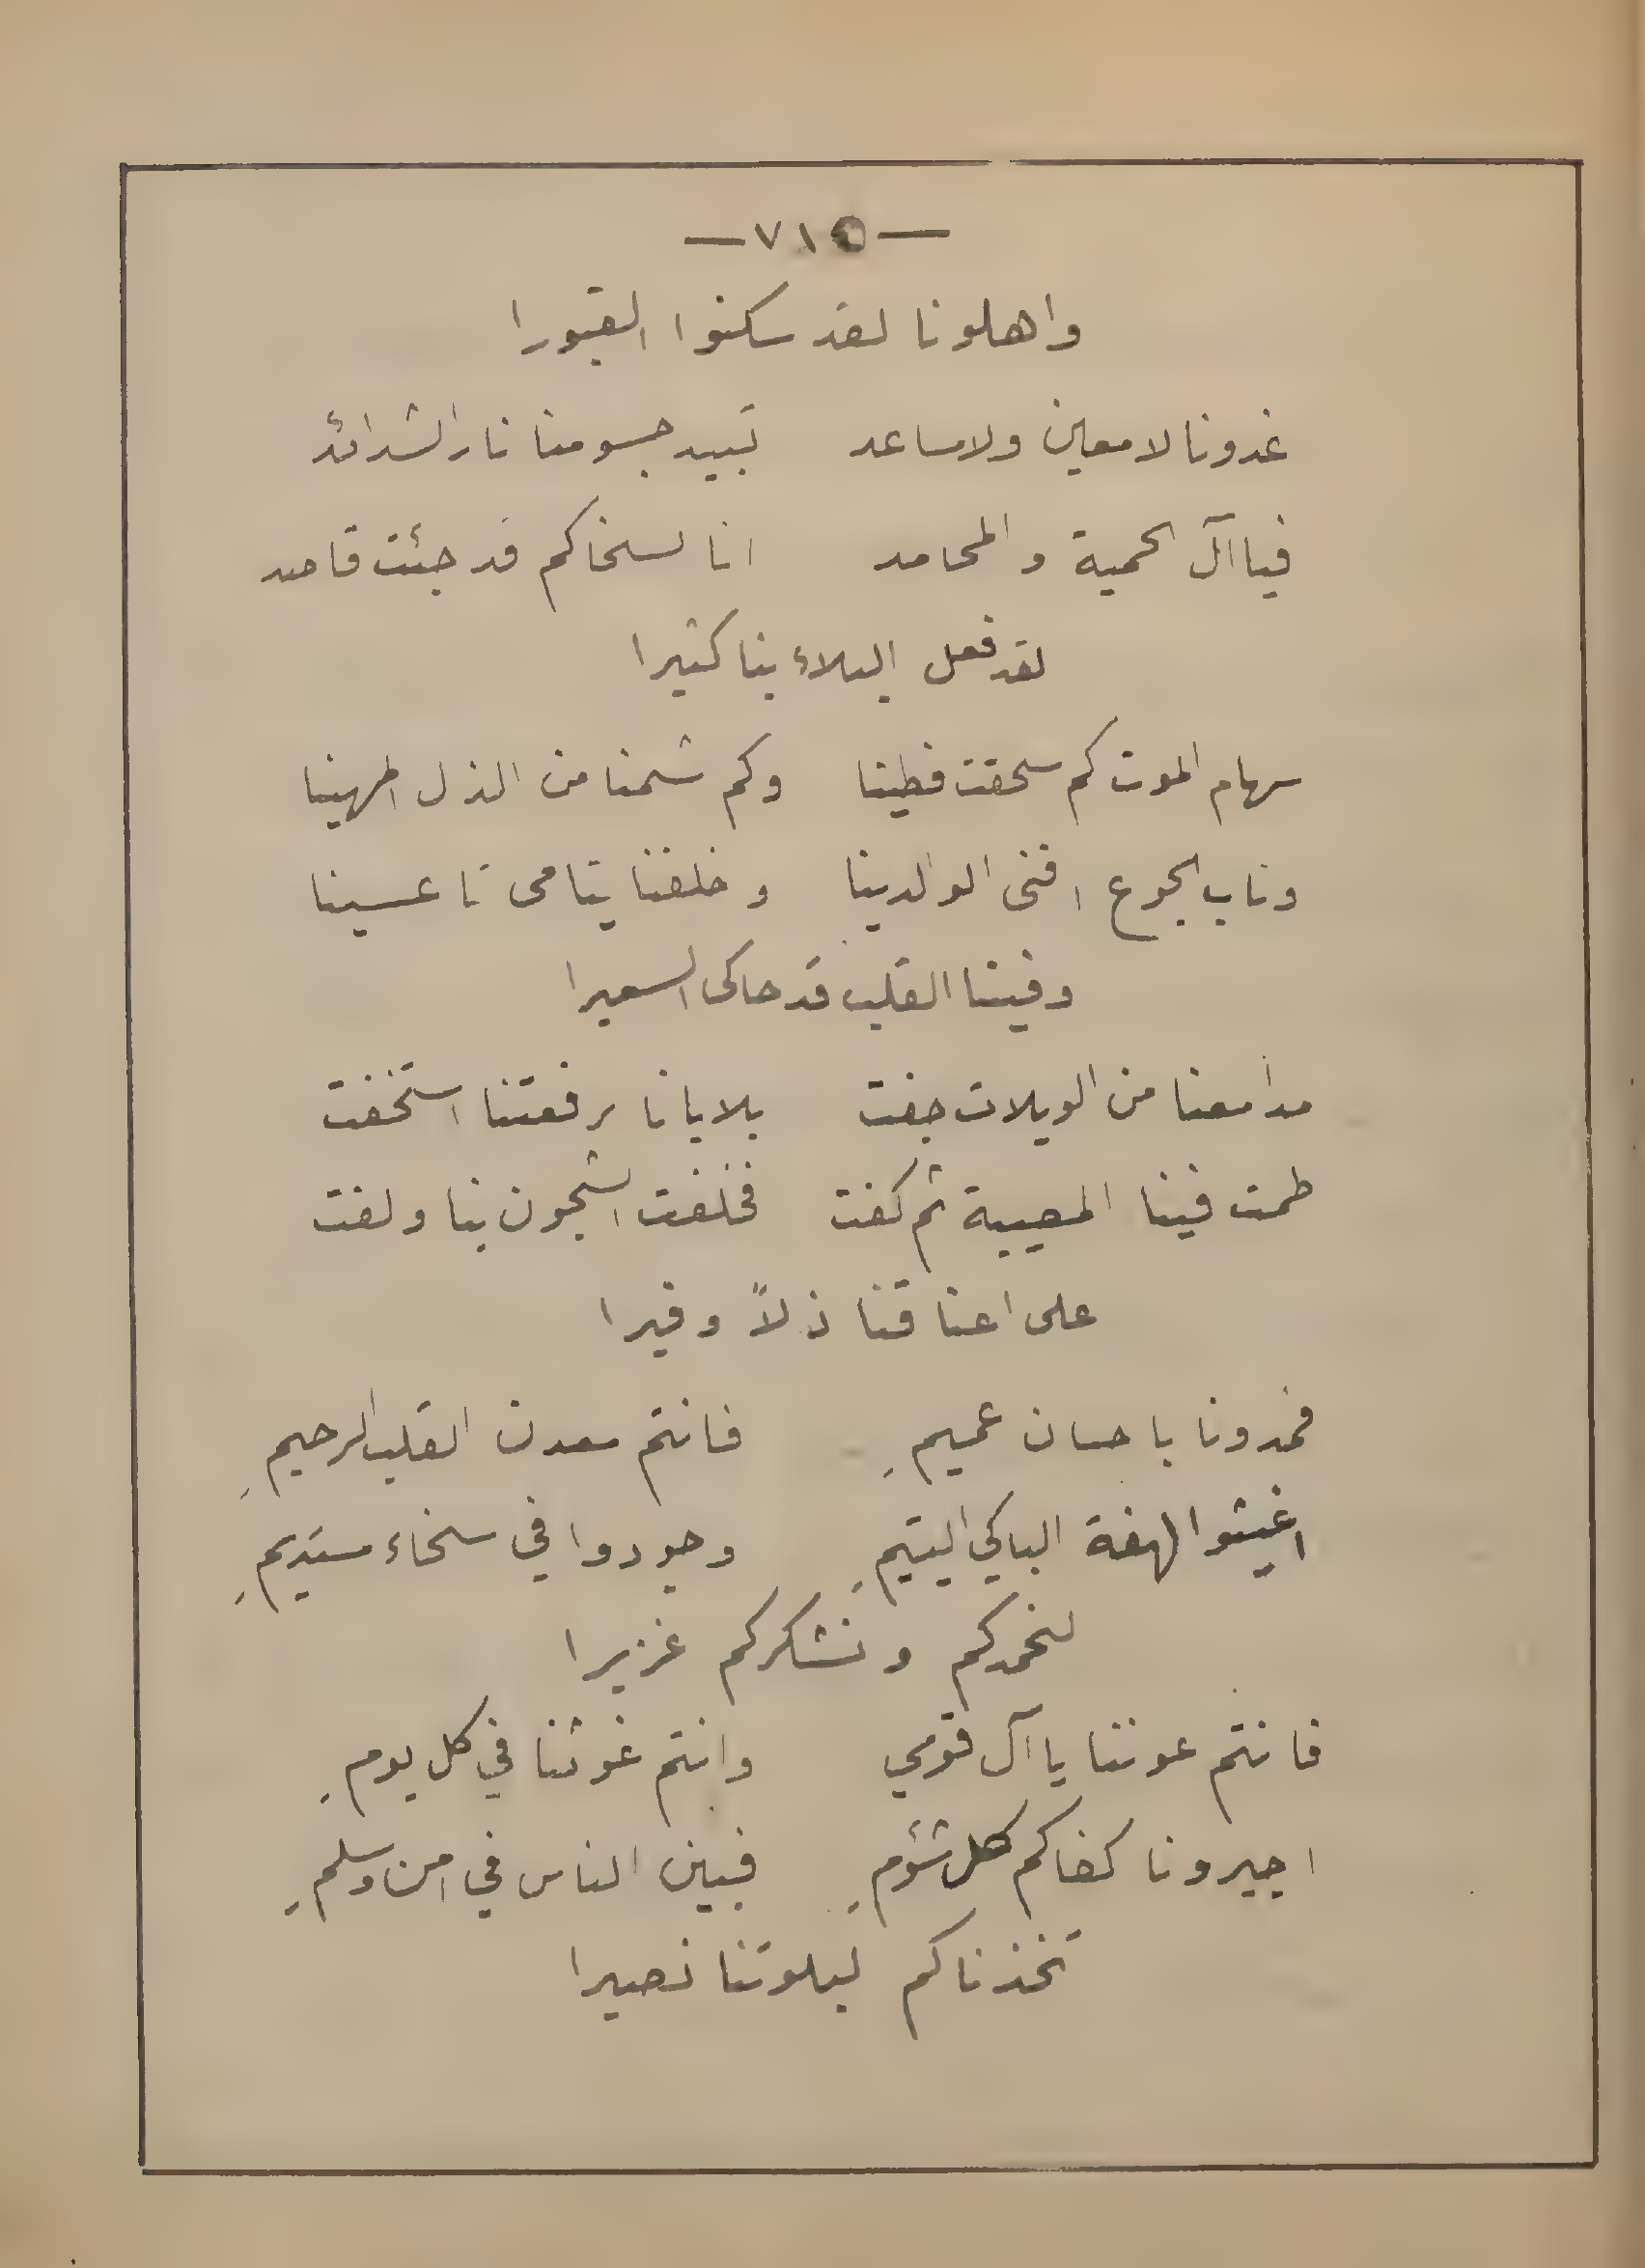 —٧١٥—
واهلونا لقد سكنوا القبورا
غدونا لا معين ولا مساعد تبيد جسومنا نار الشدائد
فيا آل الحمية والمحامد انا لسخاكم قد جئت قاصد
لقد فعل البلاء بنا كثيرا
سهام الموت كم سحقت فطينا وكم شمنا من الذل المهينا
وناب الجوع افنى الوالدينا وخلفنا يتامى تاعسينا
وفينا القلب قد حاكى السعيرا
مدامعنا من الويلات جفت بلايانا برفعتنا استخفت
طمت فينا المصيبة ثم كفت فخلفت الشجون بنا ولفت
على اعناقنا ذلاً وفيرا
فمدونا باحسان عميمِ فانتم معدن القلب الرحيمِ
اغيثوا لهفة الباكي اليتيمِ وجودوا في سخاء مستديمِ
لنحمدكم ونشكركم غزيرا
فانتم عوننا يا آل قومي وانتم غوثنا في كل يومِ
اجيرونا كفاكم كل شؤمِ فبين الناس في امن وسلمِ
تخذناكم لبلوتنا نصيرا